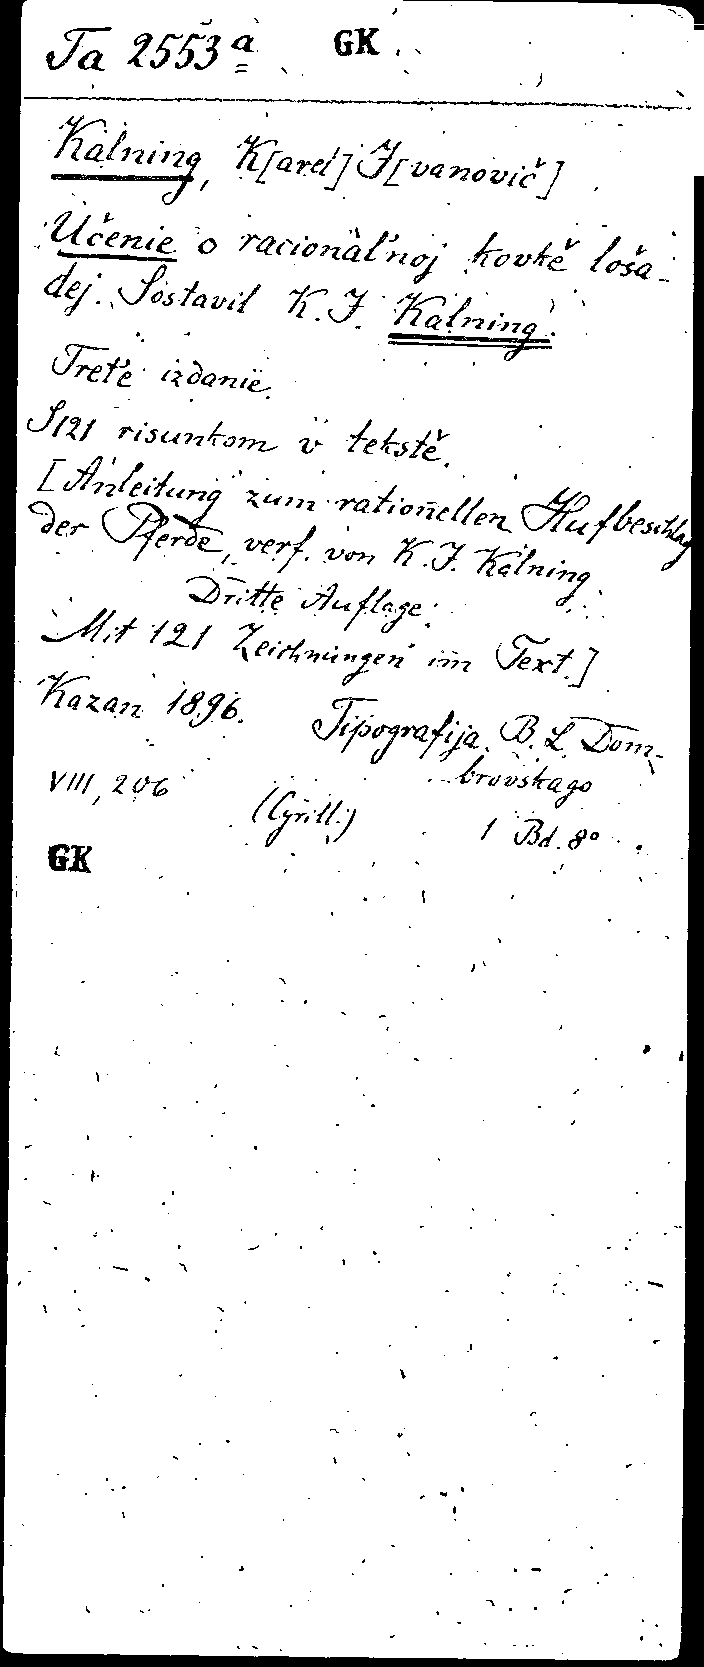 Ta 2553a GK
Kalning, K[arel] I[vanovič]
Učenie o racional'noj kovkě loša-
dej. Sostavil K. I. Kalning.
Tret'e izdanie.
S 121 risunkom v tekstě.
[Anleitung zum rationellen Hufbeschlag
der Pferde, verf. von K. I. Kalning
Dritte Auflage.
Mit 121 Zeichnungen im Text.]
Kazan 1896. Tipografija B. L. Dom-
brovskago
VIII, 206 (Cyrill.) 1 Bd. 8°
GK